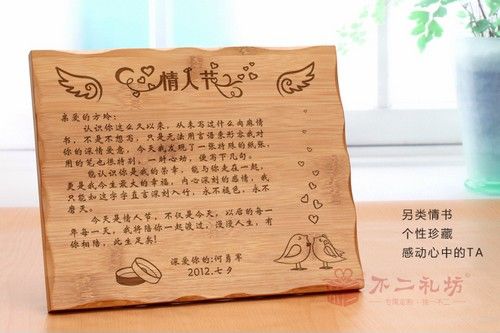 情人节
亲爱的方玲:
认识你这么久以来，从未写过什么肉麻情
书，不是不想写，只是无法用言语来形容我对
你的深情爱意，今天我发现了一张特殊的纸张，
用的笔也很特别，一时心动，便写下几句。
能认识你是我的荣幸，能与你走在一起，
更是我今生最大的幸福，内心深刻的感情，我
只能如这字字直言深刻入行，永不褪色，永不
磨灭。
今天是情人节，不仅是今天，以后的每一
年每一天，我将陪你一起渡过，漫漫人生，有
你相陪，此生足矣！
深爱你的:何勇军
2012.七夕
另类情书
个性珍藏
感动心中的TA
不二礼坊